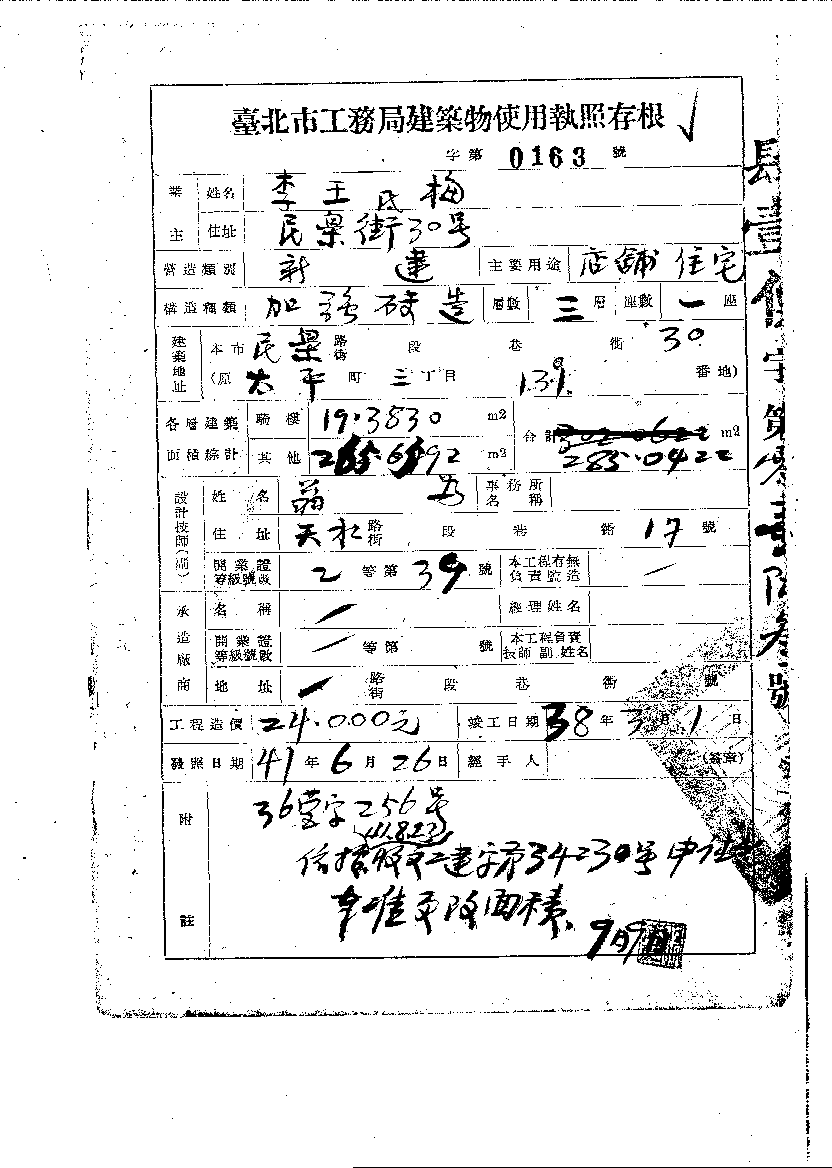 臺北市工務局建築物使用執照存根
字第 0163 號
業主 姓名 李王氏梅
住址 民樂街30号
營造類別 新建 主要用途 店舖住宅
構造種類 加強磚造 層數 三層 座數 一座
建築地址 本市民樂路街 段 巷 衖 30
(原太平町三丁目 139 番地)
各層建築面積總計 騎樓 19.3830 m2 合計 285.0422 m2
其他 265.6592 m2
設計技師(副) 姓名 翁 事務所名稱
住址 天水路街 段 巷 衖 17 號
開業證等級號數 2 等第 39 號 本工程有無負責監造 一
承造廠商 名稱 經理姓名
開業證等級號數 等第 號 本工程負責技師副姓名
地址 路街 段 巷 衖 號
工程造價 24.000元 竣工日期 38年3月1日
發照日期 41年6月26日 經手人 (簽章)
附註 36營字256号
(11.822)
依據 工建字第34230号申請
奉准更改面積
9月9日
字第零壹陸叁號